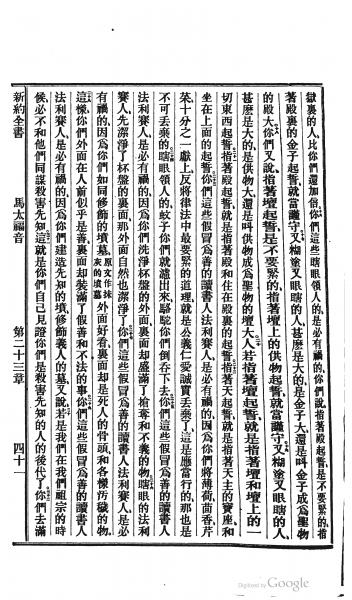 獄裏的人比你們還加倍你們這些瞎眼領人的是必有禍的你們說指著殿起誓是不要緊的指
著殿裏的金子起誓就當謹守又糊塗又眼瞎的人甚麽是大的是金子大還是叫金子成爲聖物
的殿大你們又說指著壇起誓是不要緊的指著壇上的供物起誓就當謹守又糊塗又眼瞎的人
甚麽是大的是供物大還是叫供物成爲聖物的壇大人若指著壇起誓就是指著壇和壇上的一
切東西起誓指著殿起誓就是指著殿和住在殿裏的起誓指著天起誓就是指著天主的寶座和
坐在上面的起誓你們這些假冒爲善的讀書人法利賽人是必有禍的因爲你們將薄荷茴香芹
菜十分之一獻上反將律法中最要緊的道理就是公義仁愛誠實丟棄了這是應當行的那也是
不可丟棄的瞎眼領人的蚊子你們就濾出來駱駝你們倒吞下去你們這些假冒爲善的讀書人
法利賽人是必有禍的因爲你們洗淨杯盤的外面裏面却盛滿了搶奪和不義的物瞎眼的法利
賽人先潔淨了杯盤的裏面那外面自然也潔淨了你們這些假冒爲善的讀書人法利賽人是必
有禍的因爲你們如同修飾的墳墓原文作抹灰的墳墓外面好看裏面却是死人的骨頭和各樣污穢的物
這樣你們外面在人前似乎是善裏面却裝滿了假善和不法的事你們這些假冒爲善的讀書人
法利賽人是必有禍的因爲你們建造先知的墳修飾義人的墓又說若是我們在我們祖宗的時
候必不和他們同謀殺害先知這就是你們自己見證你們是殺害先知的人的後代了你們去滿
新約全書 馬太福音 第二十三章 四十一
Digitized by Google